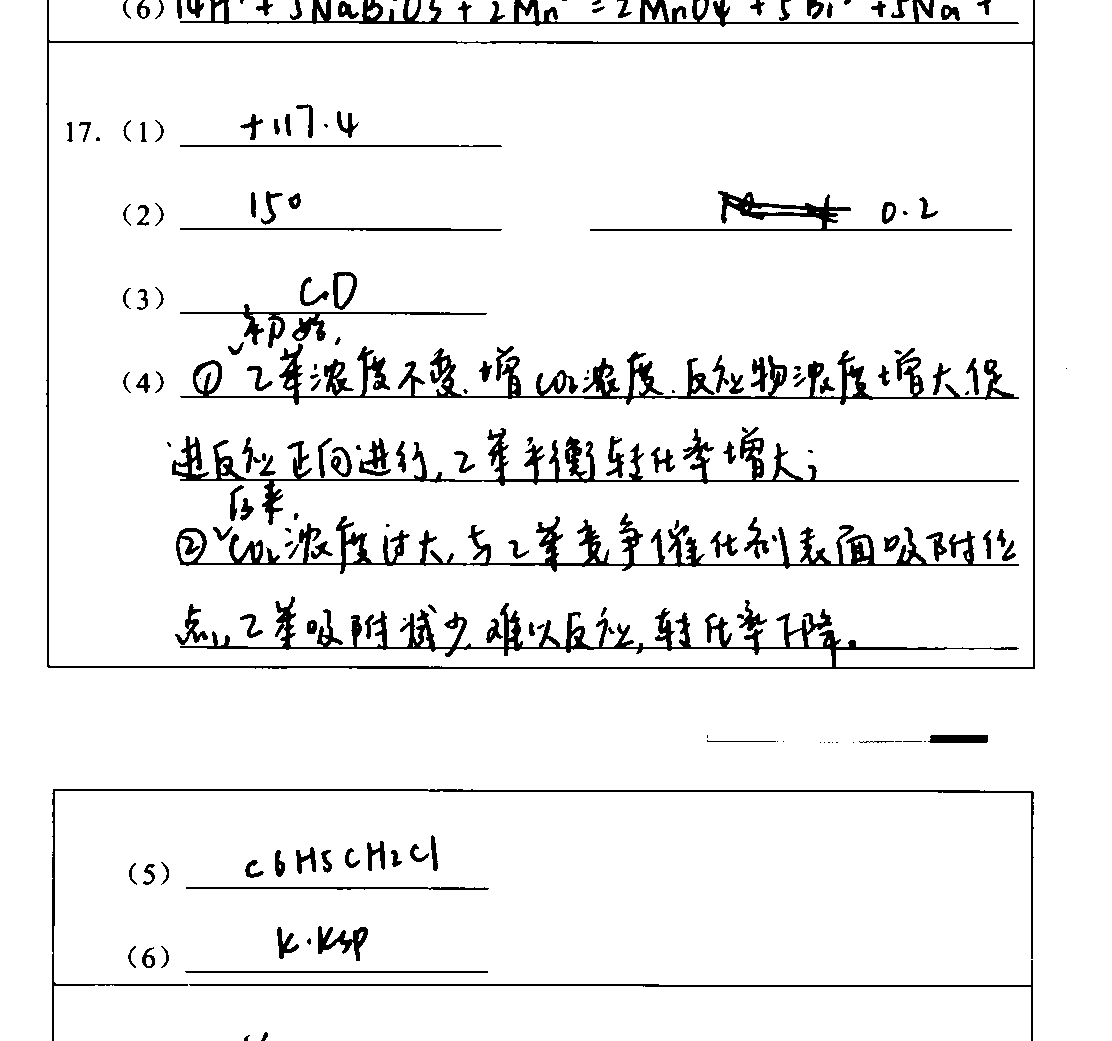 (6) 14H⁺ + 5NaBiO3 + 2Mn²⁺ = 2MnO4⁻ + 5Bi³⁺ + 5Na⁺ +
17. (1) +117.4
(2) 150 0.2
(3) CD
初始,
(4) ① 乙苯浓度不变,增CO2浓度,反应物浓度增大,促
进反应正向进行,乙苯平衡转化率增大;
后来,
② CO2浓度过大,与乙苯竞争催化剂表面吸附位
点,乙苯吸附减少,难以反应,转化率下降。
(5) C6H5CH2Cl
(6) K·Ksp